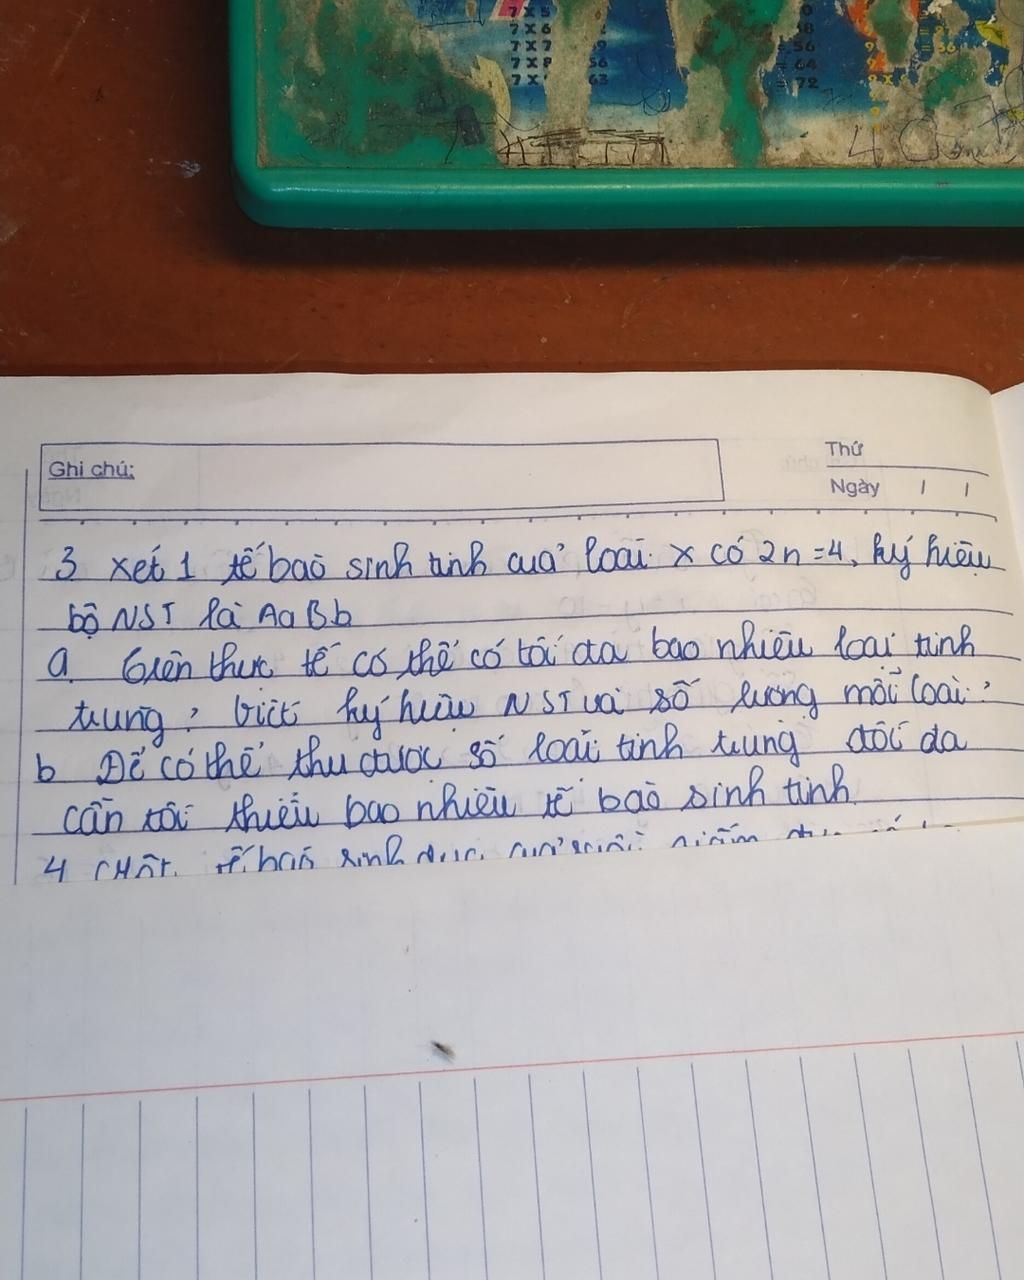 7 X 5
7 X 6
7 X 7
7 X 8 56
7 X 63
= 56
= 64
= 72
= 56
Ghi chú:
Thứ
Ngày / /
3 xét 1 tế bào sinh tinh của loài x có 2n = 4, ký hiệu
bộ NST là AaBb
a. trên thực tế có thể có tối đa bao nhiêu loại tinh
trùng? viết ký hiệu NST và số lượng mỗi loại?
b Để có thể thu được số loại tinh trùng tối đa
cần tối thiểu bao nhiêu tế bào sinh tinh.
4 tế bào sinh dục